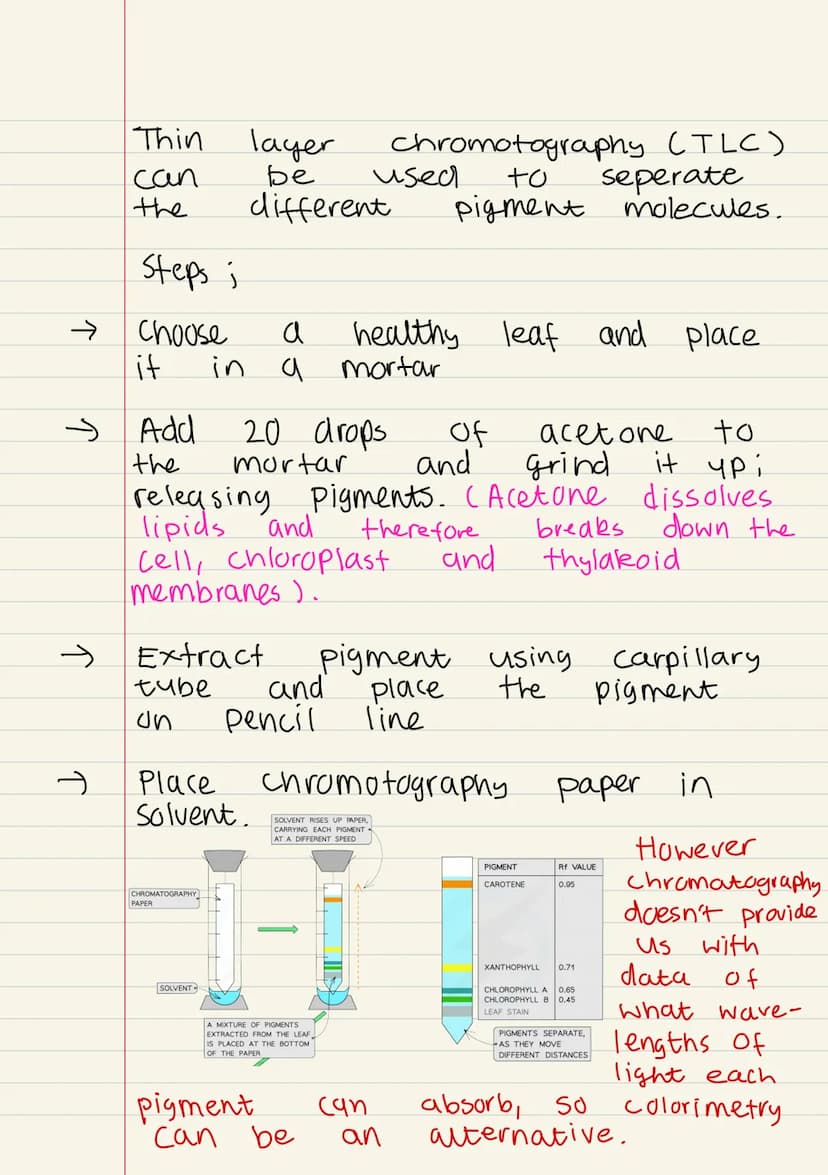 Thin layer chromotography (TLC)
can be used to seperate
the different pigment molecules.
Steps ;
→ Choose a healthy leaf and place
it in a mortar
→ Add 20 drops of acetone to
the mortar and grind it up;
releasing pigments. (Acetone dissolves
lipids and therefore breaks down the
cell, chloroplast and thylakoid
membranes).
→ Extract pigment using carpillary
tube and place the pigment
on pencil line
→ Place chromotography paper in
solvent.
SOLVENT RISES UP PAPER,
CARRYING EACH PIGMENT
AT A DIFFERENT SPEED
CHROMATOGRAPHY
PAPER
SOLVENT
A MIXTURE OF PIGMENTS
EXTRACTED FROM THE LEAF
IS PLACED AT THE BOTTOM
OF THE PAPER
PIGMENT Rf VALUE
CAROTENE 0.95
XANTHOPHYLL 0.71
CHLOROPHYLL A 0.65
CHLOROPHYLL B 0.45
LEAF STAIN
PIGMENTS SEPARATE,
AS THEY MOVE
DIFFERENT DISTANCES
However
chromatography
doesn't provide
us with
data of
what wave-
lengths of
light each
pigment can absorb, so colorimetry
can be an alternative.